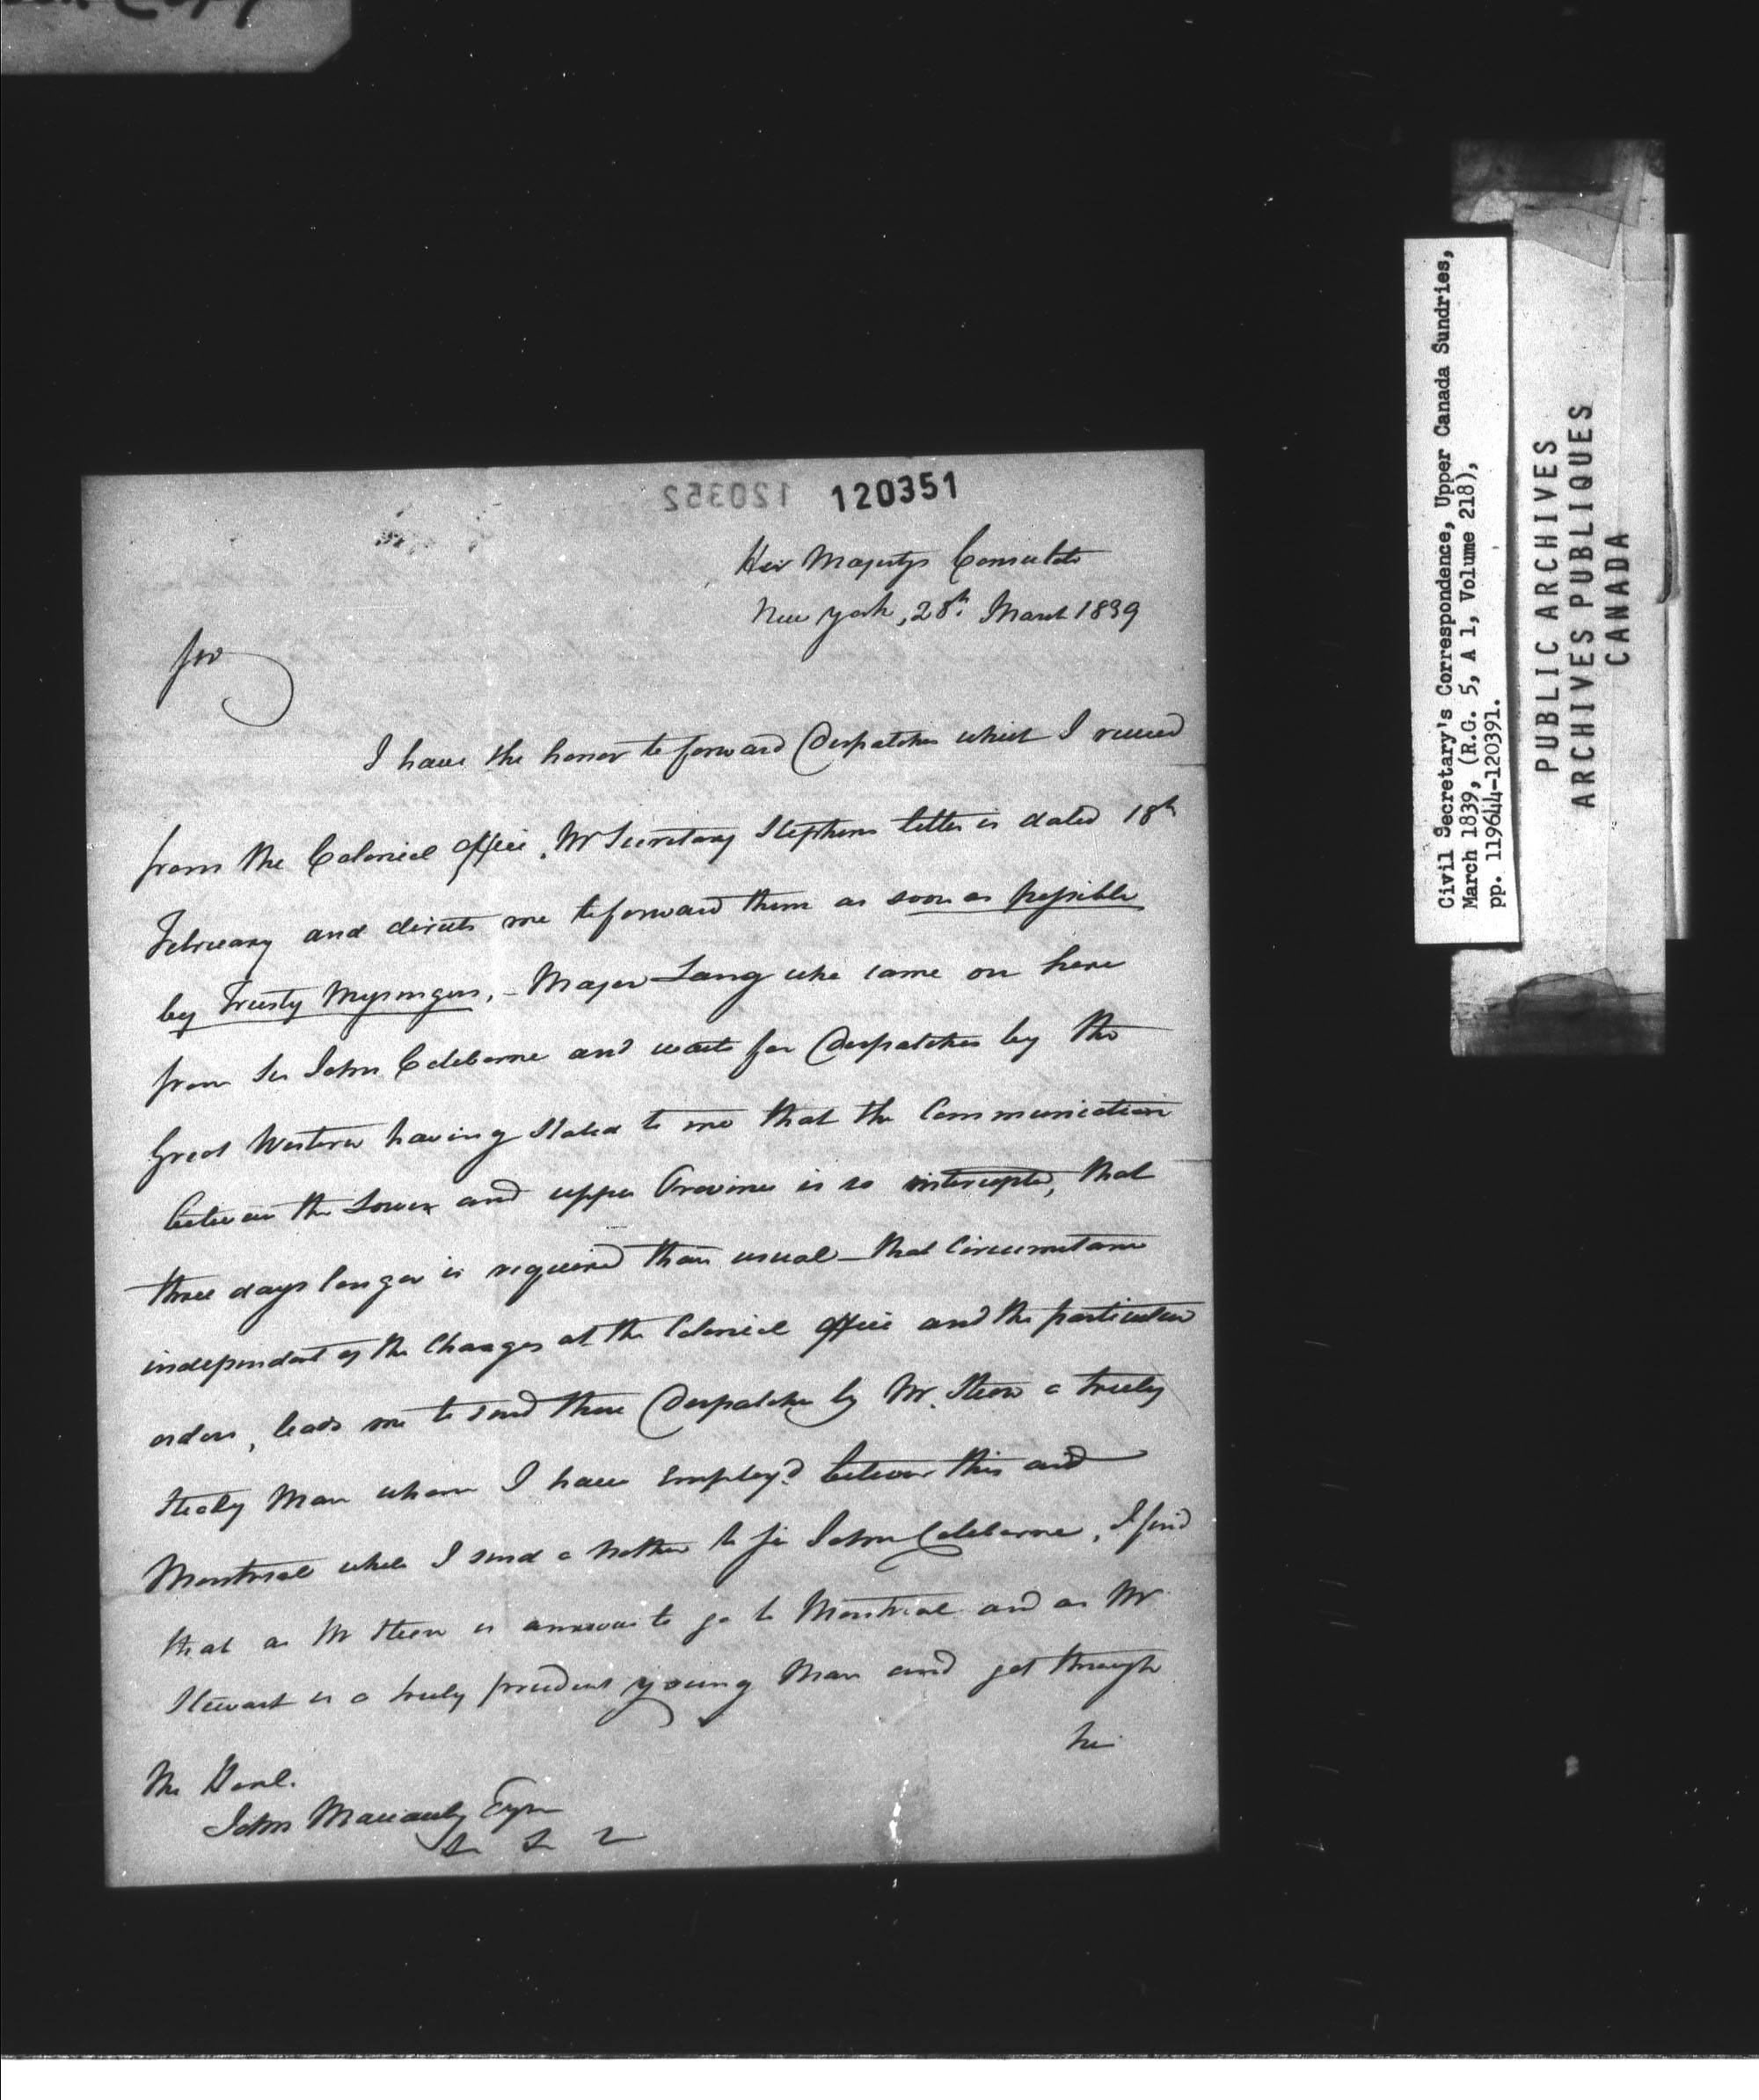 120351
Her Majestys Consulate
New York, 28th March 1839
Sir
I have the honor to forward Despatches which I received
from the Colonial Office, Mr Secretary Stephens letter is dated 18th
February and directs me to forward them as soon as possible
by Trusty Messengers, - Major Lang who came on here
from Sir John Colborne and waits for Despatches by the
Great Western having stated to me that the Communication
between the Lower and upper Province is so intercepted, that
three days longer is required than usual - that Circumstance
independent of the Changes at the Colonial Office and the particular
orders, leads me to send these Despatches by Mr. a truly
steady Man whom I have employ'd between this and
Montreal while I send a nother to Sir John Colborne, I find
that as Mr is anxious to go to Montreal and as Mr
Stewart is a truly prudent young Man and got through
his
The Honl.
John Macaulay Esqr
Civil Secretary's Correspondence, Upper Canada Sundries,
March 1839, (R.G. 5, A 1, Volume 218),
pp. 119644-120391.
PUBLIC ARCHIVES
ARCHIVES PUBLIQUES
CANADA